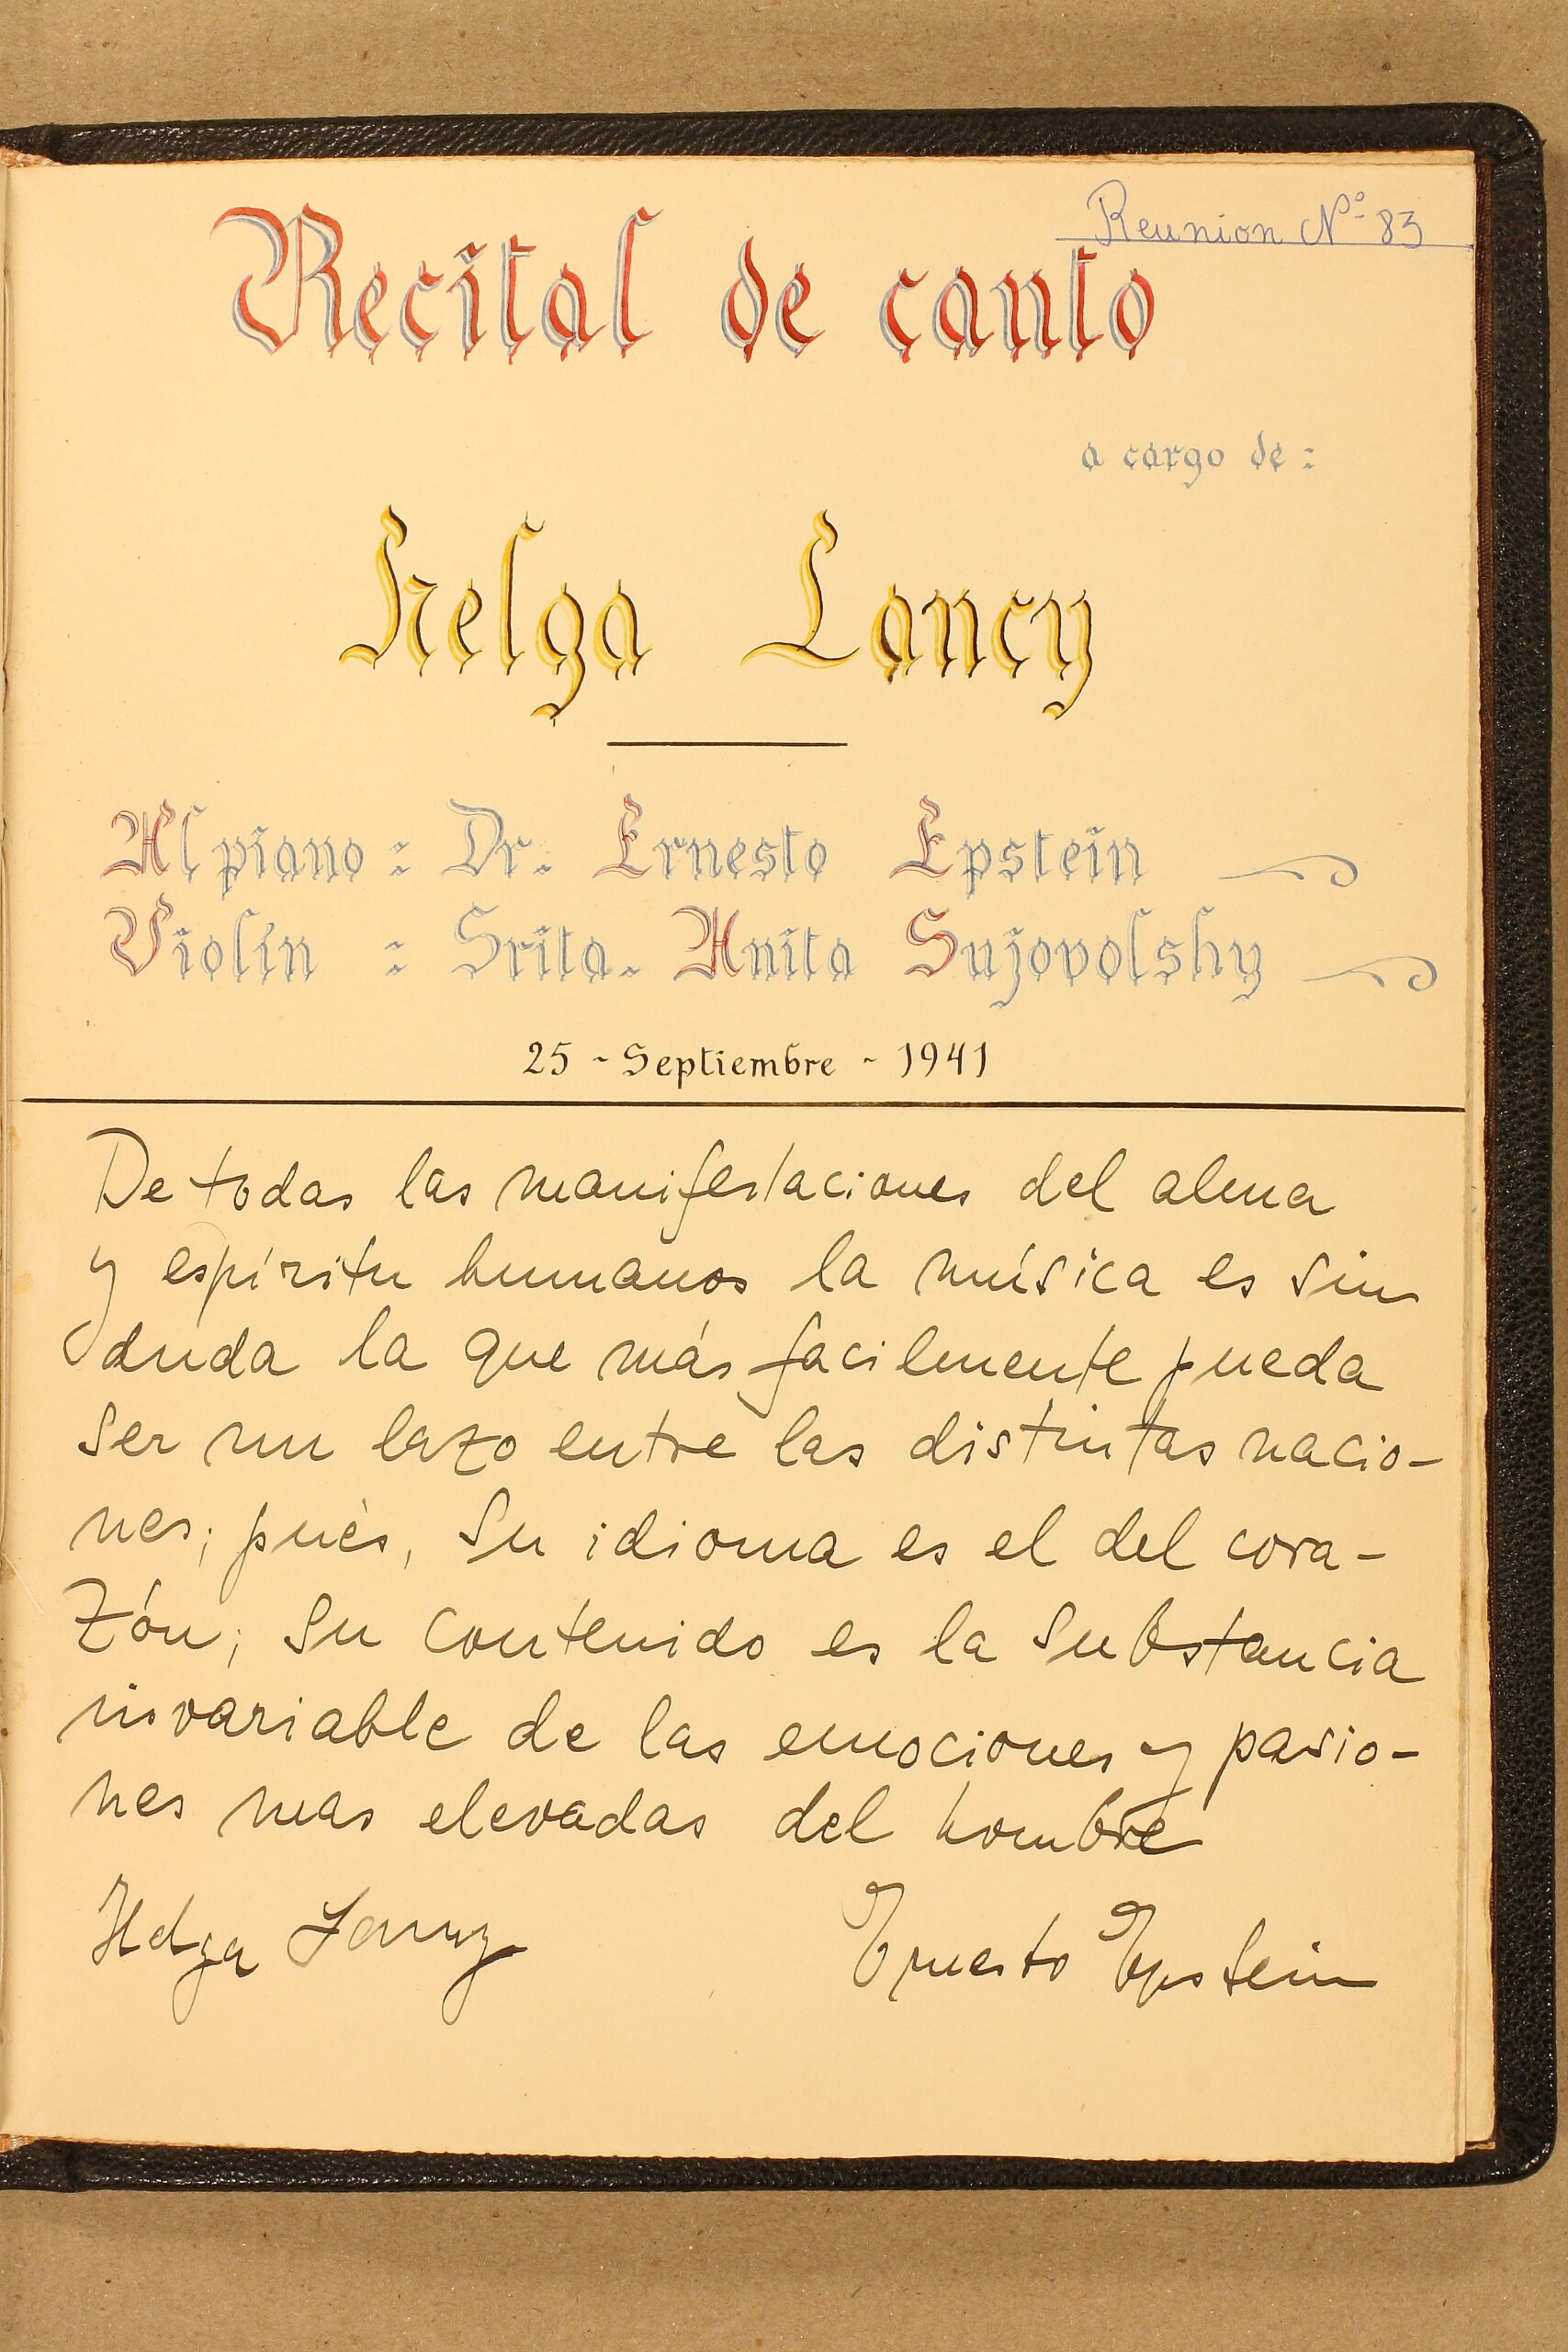 Reunion Nº 83
Recital de canto
a cargo de :
Helga Lancy
Al piano : Dr. Ernesto Epstein
Violín : Srita. Anita Sujovolshy
25 - Septiembre - 1941
De todas las manifestaciones del alma
y espíritu humanos la música es sin
duda la que más facilmente pueda
ser un lazo entre las distintas nacio-
nes; pués, su idioma es el del cora-
zón; su contenido es la substancia
invariable de las emociones y pasio-
nes mas elevadas del hombre
Helga Lancy
Ernesto Epstein